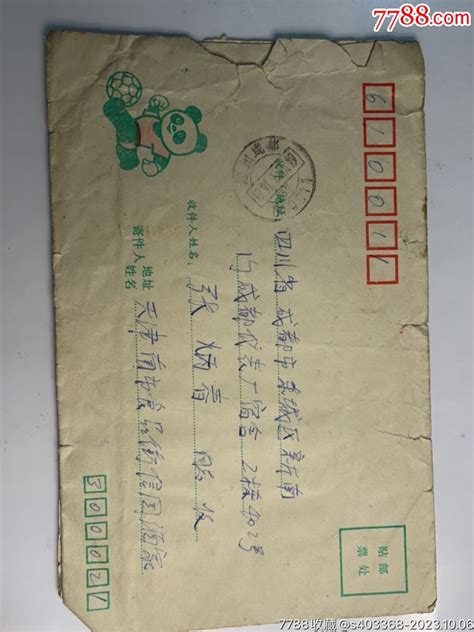 7788.com
610011
收件人地址:
四川省成都市东城区新南
门成都仪表厂宿舍2栋402号
收件人姓名:
张炳青 收
寄件人 地址
姓名
天津南市食品街信园酒家
300021
贴邮
票处
7788收藏@s403368-2023.10.06